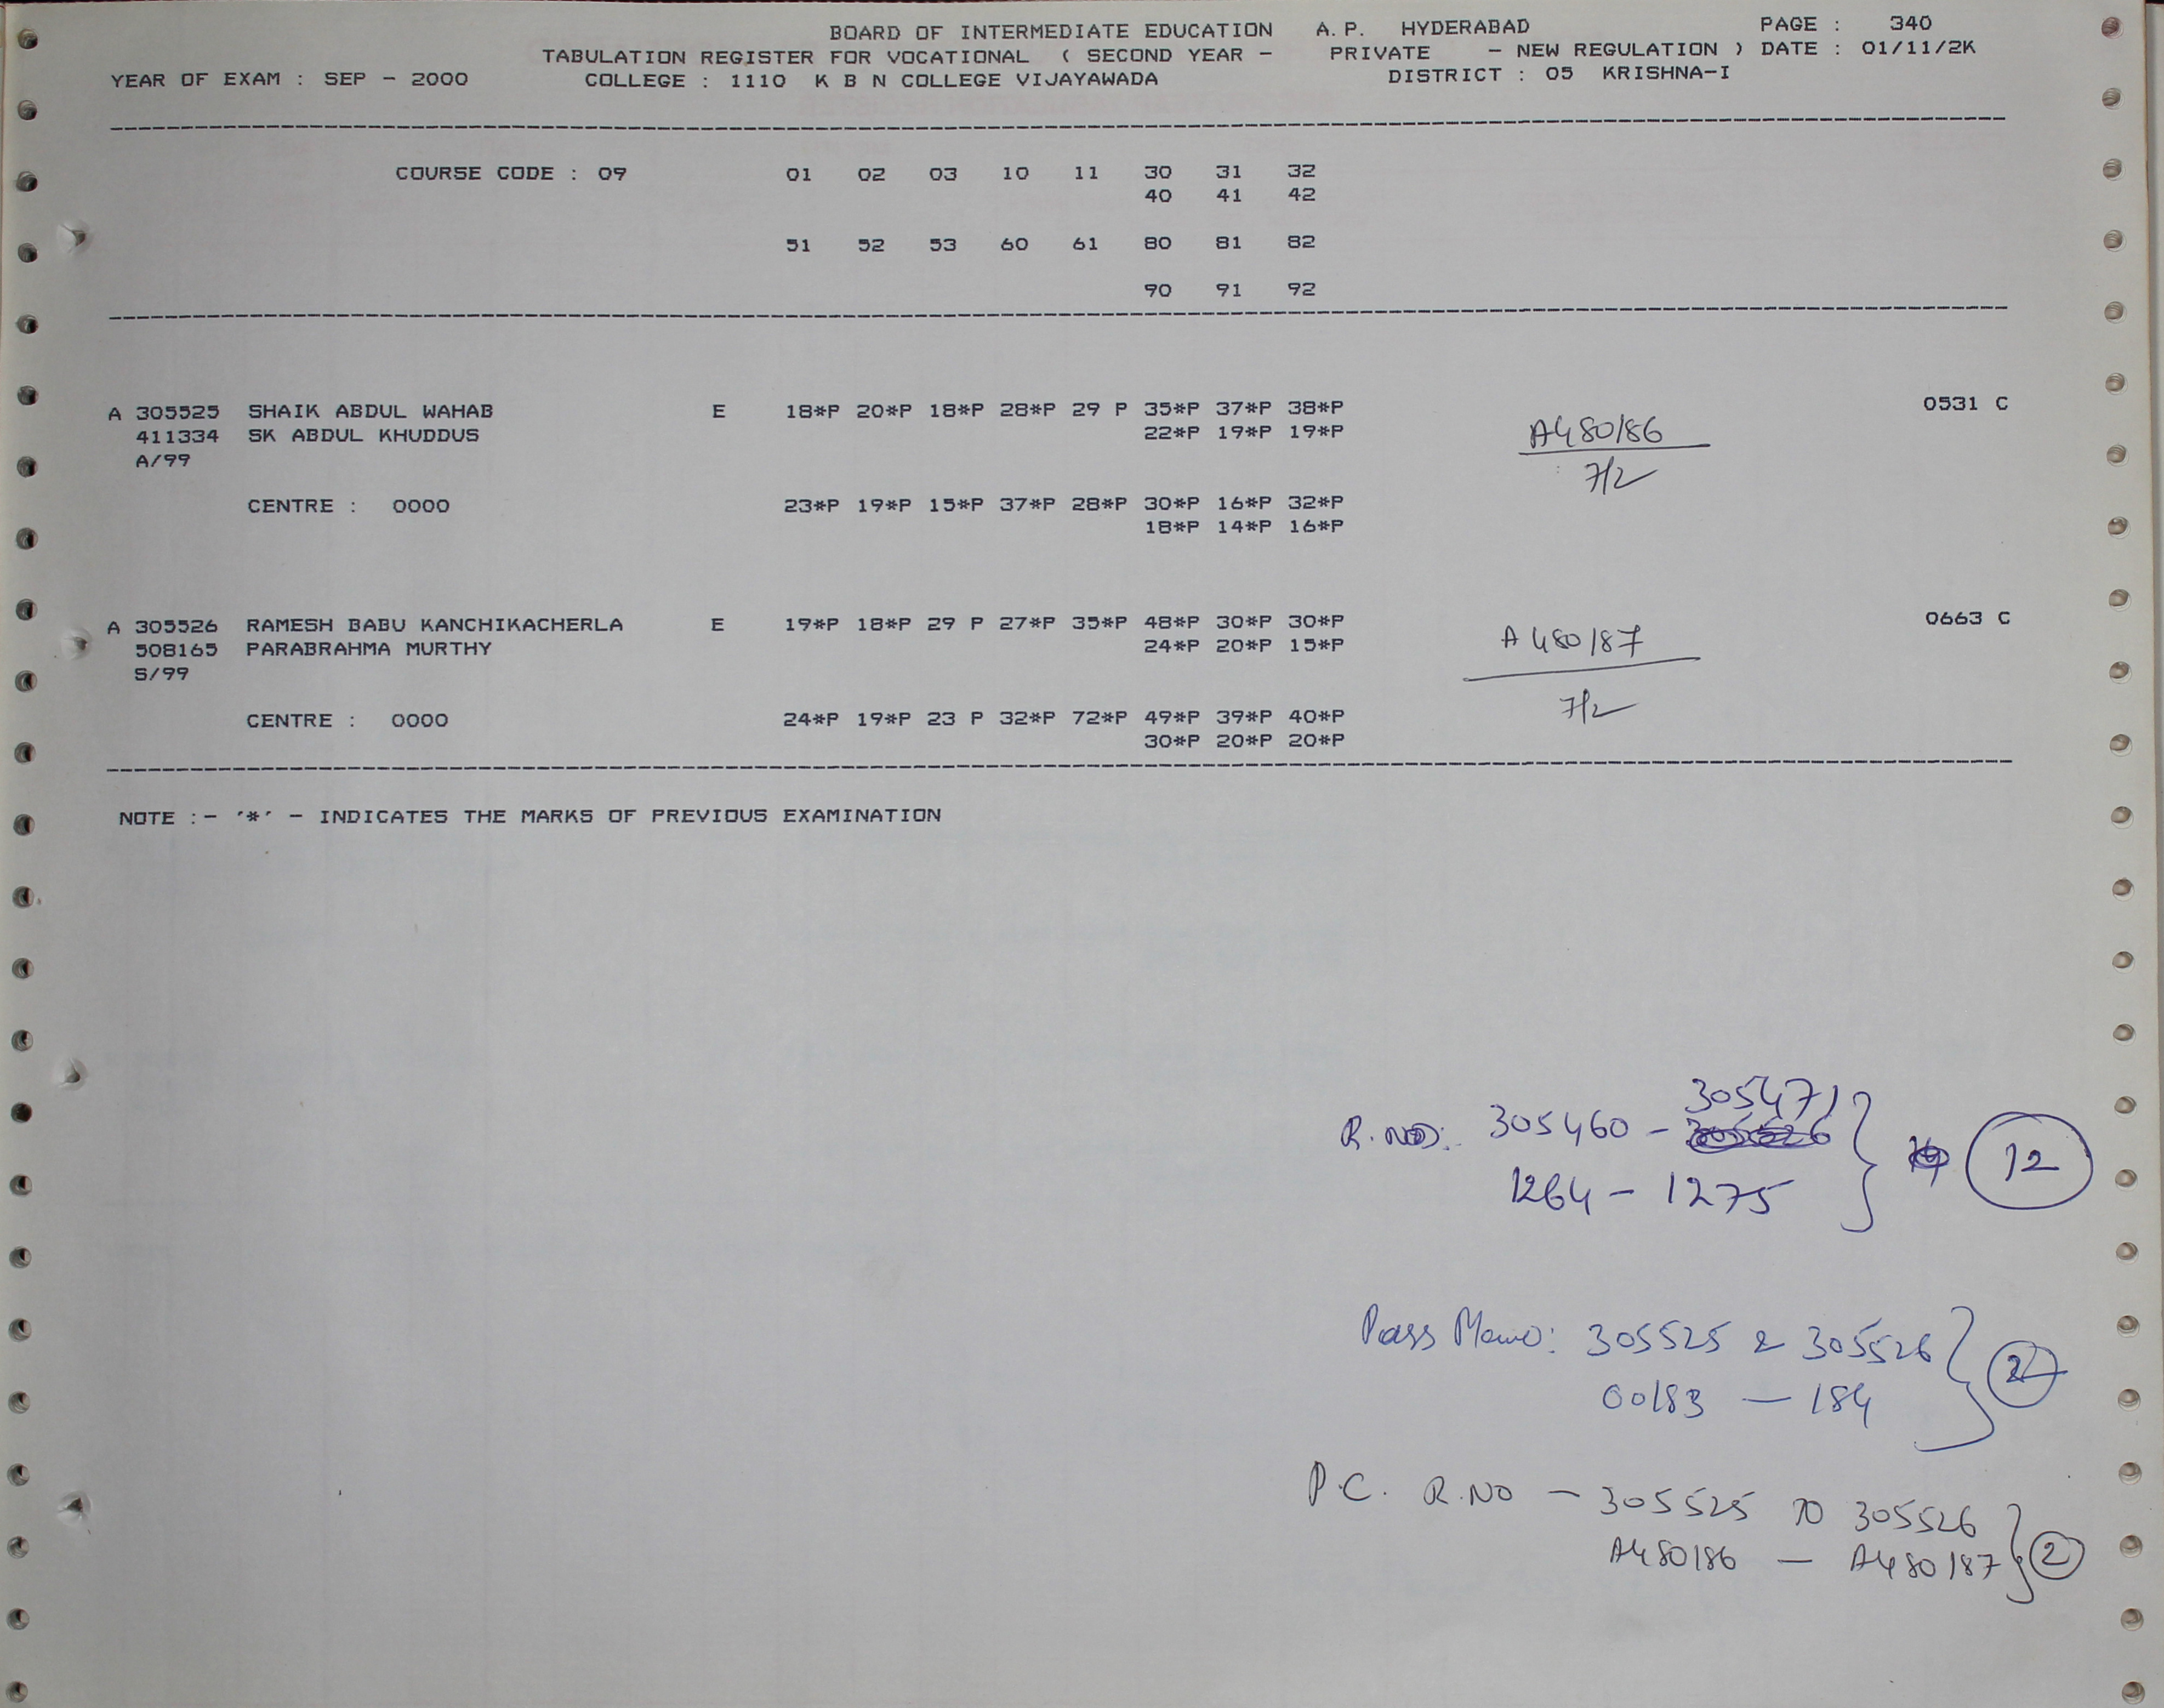 BOARD OF INTERMEDIATE EDUCATION A.P. HYDERABAD PAGE : 340
TABULATION REGISTER FOR VOCATIONAL ( SECOND YEAR - PRIVATE - NEW REGULATION ) DATE : 01/11/2K
YEAR OF EXAM : SEP - 2000 COLLEGE : 1110 K B N COLLEGE VIJAYAWADA DISTRICT : 05 KRISHNA-I
COURSE CODE : 09 01 02 03 10 11 30 31 32
40 41 42
51 52 53 60 61 80 81 82
90 91 92
A 305525 SHAIK ABDUL WAHAB E 18*P 20*P 18*P 28*P 29 P 35*P 37*P 38*P 0531 C
411334 SK ABDUL KHUDDUS 22*P 19*P 19*P A480186
A/99 7/2
CENTRE : 0000 23*P 19*P 15*P 37*P 28*P 30*P 16*P 32*P
18*P 14*P 16*P
A 305526 RAMESH BABU KANCHIKACHERLA E 19*P 18*P 29 P 27*P 35*P 48*P 30*P 30*P 0663 C
508165 PARABRAHMA MURTHY 24*P 20*P 15*P A480187
S/99
CENTRE : 0000 24*P 19*P 23 P 32*P 72*P 49*P 39*P 40*P 7/2
30*P 20*P 20*P
NOTE :- '*' - INDICATES THE MARKS OF PREVIOUS EXAMINATION
305471
R.NO: 305460 - 12
1264 - 1275
Pass Memo: 305525 & 305526 2
00183 - 184
P.C. R.NO - 305525 TO 305526
A480186 - A480187 2